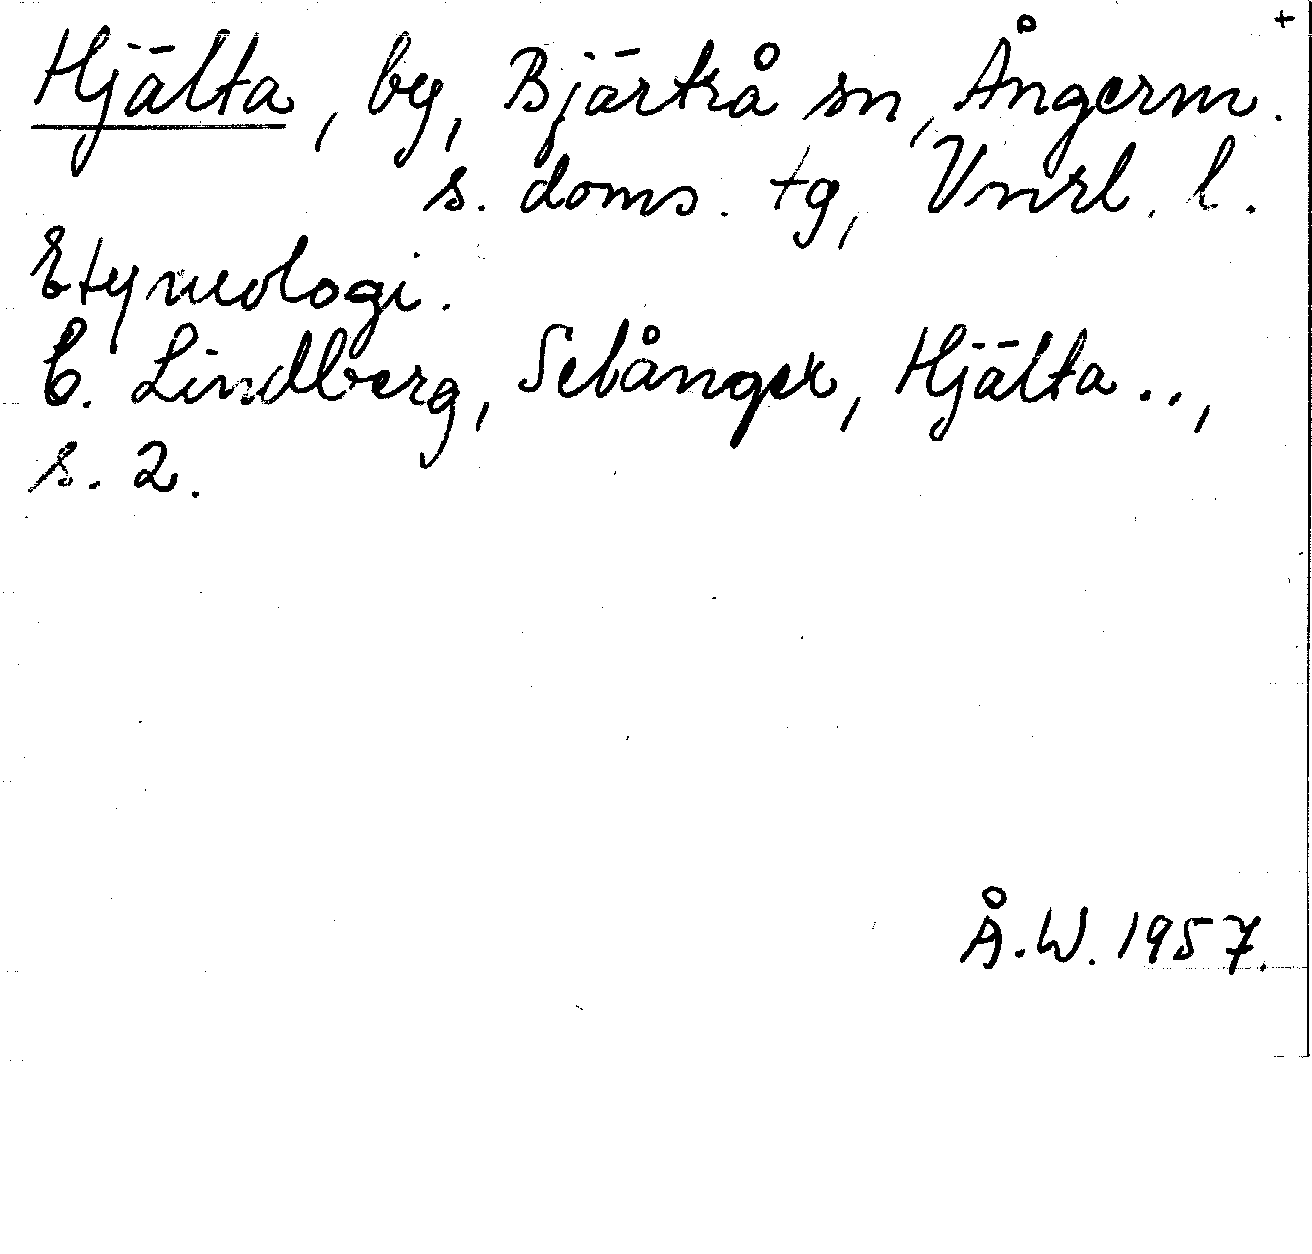 +
Hjälta, by, Bjärtrå sn, Ångerm.
s. doms. tg, Vnrl. l.
Etymologi.
C. Lindberg, Selånger, Hjälta..,
s. 2.
Å.W. 1957.